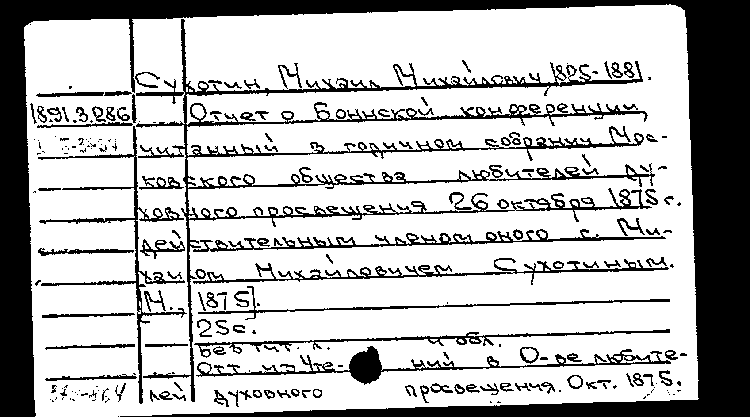 Сухотин, Михаил Михайлович, 1805-1881.
1891.3.086 Отчет о Боннской конференции,
читанный в годичном собрании Мос-
ковского общества любителей ду-
ховного просвещения 26 октября 1875 г.
действительным членом оного с. Ми-
хаилом Михайловичем Сухотиным.
[М., 1875].
25 с.
Без тит. л. и обл.
Отт. из Чте-ний в О-ве любите-
лей духовного просвещения. Окт. 1875.